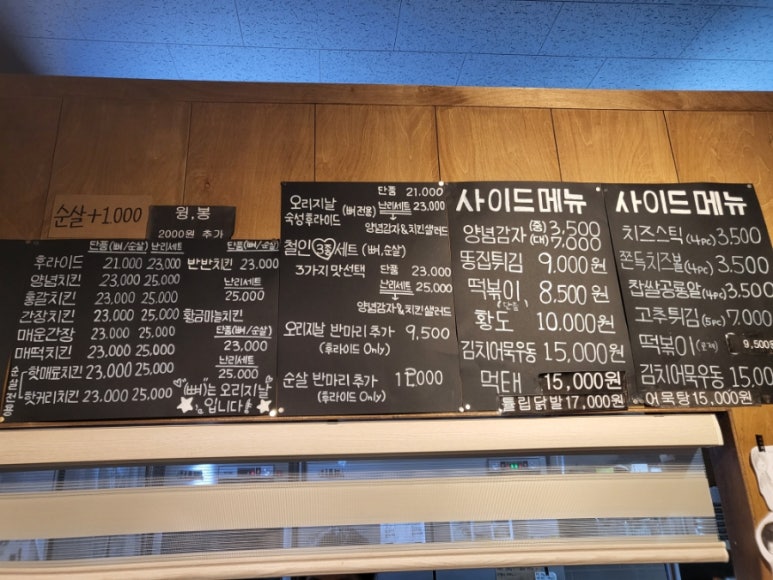 순살+1000
윙,봉
2000원 추가
단품(뼈/순살) 난리세트
후라이드 21.000 23,000
양념치킨 23,000 25.000
통갈치킨 23,000 25.000
간장치킨 23,000 25.000
매운간장 23.000 25.000
매떡치킨 23.000 25.000
핫매료치킨 23,000 25,000
핫커리치킨 23,000 25,000
단품(뼈/순살)
반반치킨 23,000
난리세트
25.000
황금마늘치킨
단품(뼈/순살)
23,000
난리세트
25.000
(뼈)는 오리지날
입니다
오리지날
숙성후라이드
(뼈전용)
단품 21.000
난리세트 23,000
양념감자&치킨샐러드
철인 3종세트 (뼈,순살)
3가지맛선택
단품 23,000
난리세트 25.000
양념감자&치킨샐러드
오리지날 반마리 추가 9,500
(후라이드 Only)
순살 반마리 추가
(후라이드 Only)
사이드메뉴
양념감자 (중) 3,500
(대) 7,000
똥집튀김 9,000원
떡볶이 8.500원
황도 10,000원
김치어묵우동 15,000원
먹태 15,000원
튤립닭발 17,000원
사이드 메뉴
치즈스틱 (4pc) 3.500
쫀득치즈볼 (4pc) 3.500
찹쌀공룡알 (4pc) 3.500
고추튀김 (5pc) 7,000
떡볶이 9,500원
김치어묵우동 15,00
어묵탕 15,000원